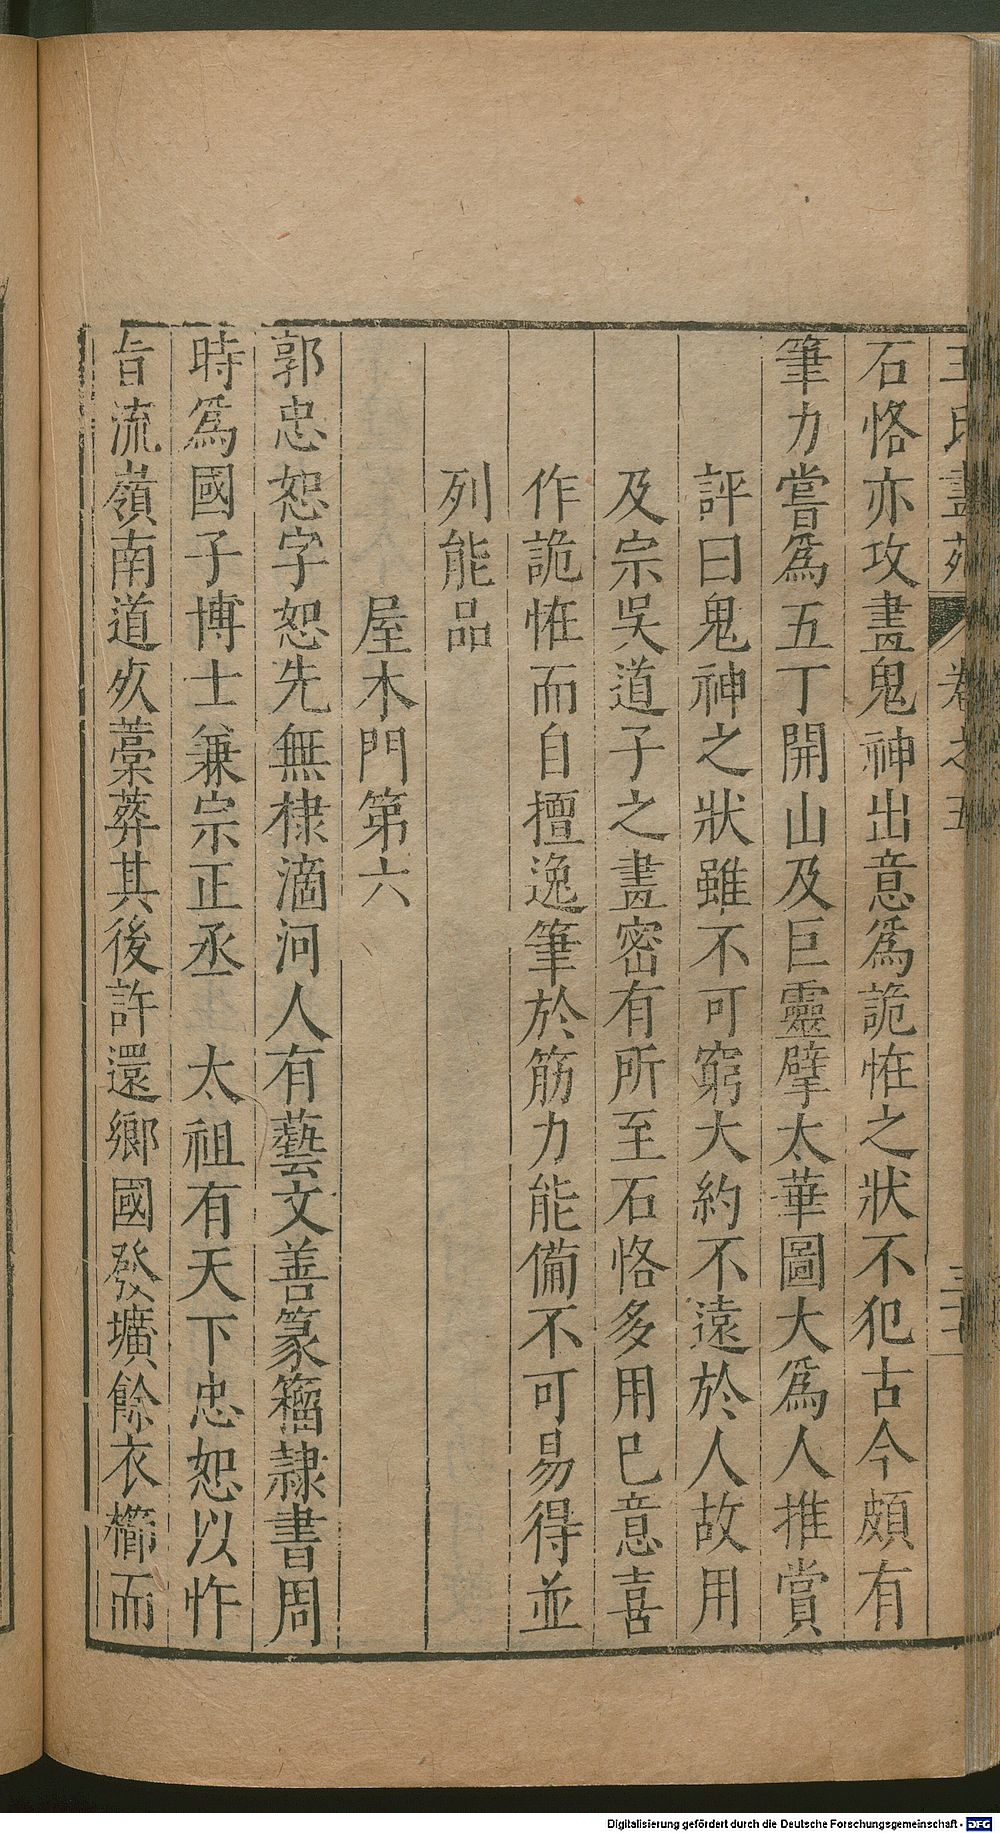 王氏畫苑 卷之五
石恪亦攻畫鬼神出意爲詭恠之狀不犯古今頗有
筆力嘗爲五丁開山及巨靈擘太華圖大爲人推賞
評曰鬼神之狀雖不可窮大約不遠於人故用
及宗吳道子之畫密有所至石恪多用巳意喜
作詭恠而自擅逸筆於筋力能備不可易得並
列能品
屋木門第六
郭忠恕字恕先無棣滴河人有藝文善篆籀隷書周
時爲國子博士兼宗正丞 太祖有天下忠恕以忤
旨流嶺南道歿藁葬其後許還鄉國發壙餘衣櫛而
Digitalisierung gefördert durch die Deutsche Forschungsgemeinschaft - DFG